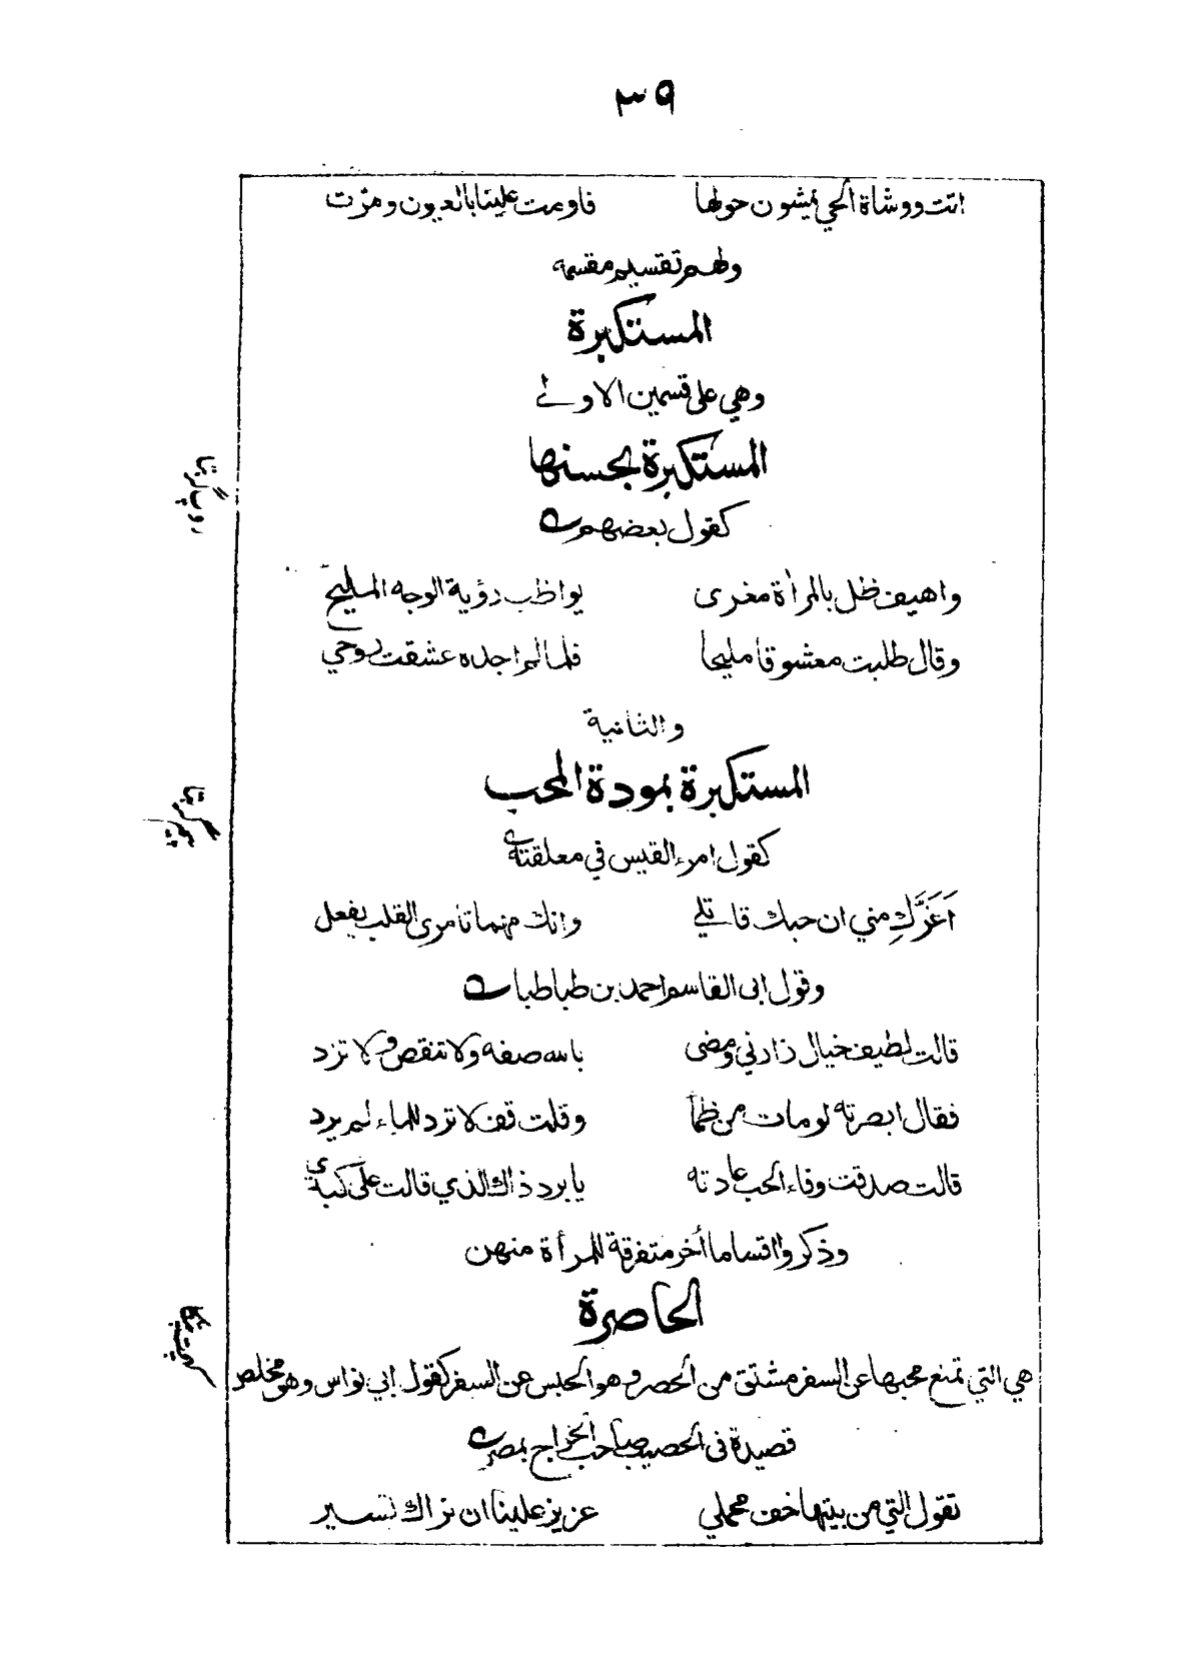 ٣٩
اتت ووشاة الحي يمشون حولها فاومت علينا بالعيون ومرت
ولهم تقسيم مقسمه
المستكبرة
وهي على قسمين الاولے
المستكبرة بحسنها
روپ گربتا
كقول بعضهم
واهيف ظل بالمرأة مغرى يواظب رؤية الوجه المليح
وقال طلبت معشوقا مليحا فلما لم اجده عشقت روحي
والثانية
المستكبرة بمودة المحب
كقول امرء القيس في معلقته
اَغَرَّكِ مني ان حبك قاتلے وانك مهما تامرى القلب يفعل
وقول ابى القاسم احمد بن طباطبا
قالت لطيف خيال زارني ومضى بالله صفه ولا تنقص ولا تزد
فقال ابصرته لو مات من ظمأ وقلت قف لا ترد للماء لم يرد
قالت صدقت وفاء الحب عادته يا برد ذاك الذي قالت على كبدي
وذكروا اقساما أخر متفرقة للمرأة منهن
الحاصرة
هي التي تمنع محبها عن السفر مشتق من الحصر وهو الحبس عن السفر كقول ابي نواس وهو مخلص
قصيدة فى الحصيب صاحب الخراج بمصر
تقول التي من بيتها خف محملي عزيز علينا ان نراك تسير